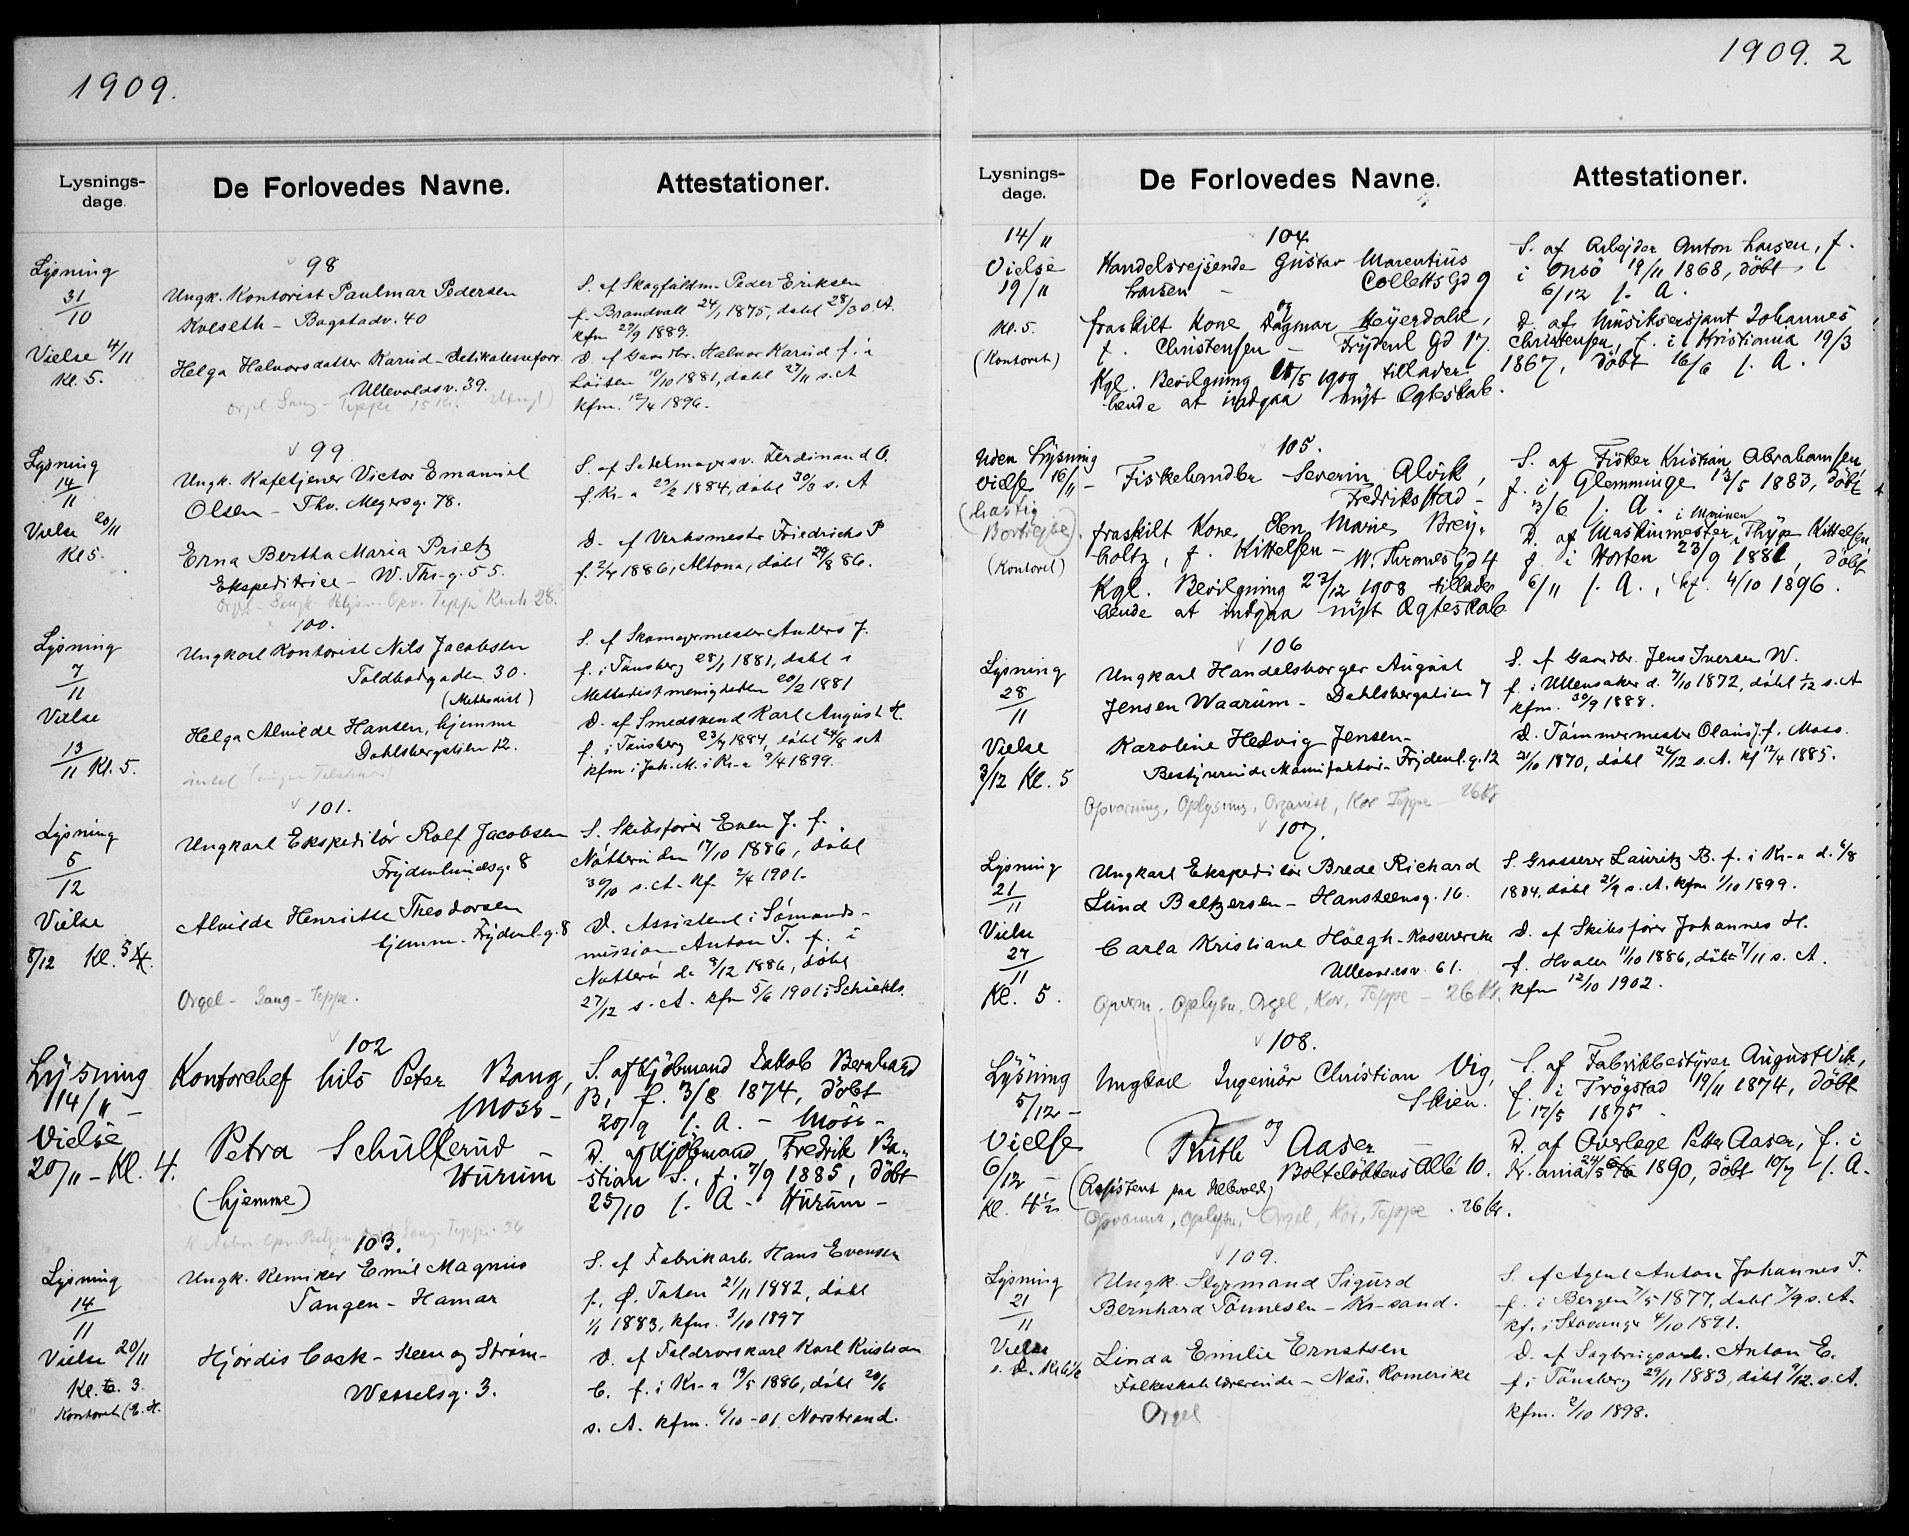 1909.
Lysnings-
dage.
De Forlovedes Navne.
Attestationer.
98
Lysning
31/10
Vielse 4/11
Kl. 5.
Ungk. Kontorist Paulmar Pedersen
Kolseth - Bogstadv. 40
Helga Halvorsdatter Karud - Delikatesseforr.
Ullevoldsv. 39.
S. af Skogfuldm. Peder Eriksen
f. Brandvall 24/1 1875, døbt 28/3 s. A.
kfm 29/9 1889.
D. af Gaardbr. Halvor Karud f. i
Løiten 10/10 1881, døbt 27/11 s. A
kfm. 12/4 1896.
99
Lysning
14/11
Vielse 20/11
Kl 5.
Ungk. Kafetjener Victor Emanuel
Olsen - Thv. Meyersg. 78.
Erna Bertha Maria Prietz
Ekspeditrice - W. Ths-g. 55.
S. af Sadelmagersv. Ferdinand O.
f. Kr-a 23/2 1884, døbt 30/3 s. A
D. af Verksmester Friedrichs P
f. 2/4 1886, Altona, døbt 29/8 86.
100.
Lysning
7/11
Vielse
13/11 Kl. 5.
Ungkarl Kontorist Nils Jacobsen
Toldbodgaden 30.
(Methodist)
Helga Alvilde Hansen, hjemme
Dahlsbergstien 12.
S. af Skomagermester Anders J.
f. i Tønsberg 28/1 1881, døbt i
Methodistmenigheden 20/2 1881
D. af Smedsvend Karl August H.
f. i Tønsberg 23/4 1884, døbt 24/8 s A
kfm i Joh. M. i Kr-a 9/4 1899.
101.
Lysning
5/12
Vielse
8/12 Kl. 5
Ungkarl Ekspeditør Rolf Jacobsen
Frydenlundsg. 8
Alvilde Henriette Theodorsen
hjemme. Frydenl.g. 8
Orgel - Sang - Teppe.
S. Skibsfører Even J. f.
Nøtterø den 17/10 1886, døbt
30/10 s. A. kf 2/4 1901.
D. Assistent i Sømands-
mission Anton T. f. i
Nøtterø de 8/12 1886, døbt
27/12 s. A. kfm 5/6 1901 i Schiekls.
102
Lysning
14/11 -
Vielse
20/11 - Kl. 4.
Kontorchef Nils Peter Bang,
Moss -
Petra Schullerud
Hurum
(hjemme)
S. af Kjöbmand Jakob Bernhard
B, f. 3/8 1874, döbt
20/9 s. A. - Moss -
D. af Kjöbmand Fredrik Ba-
stian S., f. 7/9 1885, döbt
25/10 s. A - Hurum -
103.
Lysning
14/11
Vielse 20/11
Kl. 3.
Ungk. Kemiker Emil Magnus
Tangen - Hamar
Hjørdis Cock - Steen og Strøm -
Wesselsg. 3.
S. af Fabrikarb. Hans Evensen
f. Ø. Toten 21/11 1882, døbt
1/1 1883, kfm. 3/10 1897
D. af Toldrorskarl Karl Kristian
C. f. i Kr-a 19/5 1886, døbt 20/6
s. A. kfm. 6/10 -01 Norstrand.
1909. 2
Lysnings-
dage.
De Forlovedes Navne.
Attestationer.
104
14/11
Vielse
19/11
Kl. 5.
(Kontoret)
Handelsrejsende Gustav Marentius
Larsen - Colletts Gd 9
og
fraskilt Kone Dagmar Meyerdahl,
f. Christensen - Frydenl Gd 17.
Kgl. Bevilgning 11/5 1909 tillader
bende at indgaa nyt Ægteskab.
S. af Arbejder Anton Larsen, f.
i Onsö 19/11 1868, döbt
6/12 s. A.
D. af Musiksersjant Johannes
Christensen, f. i Kristiania 19/3
1867, döbt 16/6 s. A.
105.
Uden Lysning
Vielse 16/11 -
(hastig
Bortrejse).
(Kontoret)
Fiskehandler Severin Alvik,
Fredriksstad -
fraskilt Kone Elen Marie Brey-
holtz, f. Kittelsen - W. Thranes Gd 4
Kgl. Bevilgning 22/12 1908 tillader
bende at indgaa nyt Ægteskab
S. af Fisker Kristian Abrahamsen
f. i Glemminge 13/5 1883, döbt
13/6 s. A.
D. af Maskinmester Thyge Kittelsen
f. i Horten 23/9 1881, döbt
6/11 s. A., kf. 4/10 1896.
106
Lysning
28/11
Vielse
3/12 Kl. 5
Ungkarl Handelsborger August
Jensen Waarum - Dahlsbergstien 7
Karoline Hedvig Jensen -
Bestyrerinde Manufaktur - Frydenl.g. 12
Opvarming, Oplysning, Organist, Kor Teppe - 26 Kr
S. af Gaardbr. Jens Iversen W.
f. i Ullensaker d. 7/10 1872, døbt 1/12 s. A
kfm. 30/9 1888.
D. Tømmermester Olaus J. f. Moss.
21/10 1870, døbt 26/12 s. A. kf 12/4 1885.
107.
Lysning
21/11
Vielse
27/11
Kl. 5.
Ungkarl Ekspeditør Brede Richard
Lund Baltzersen - Hansteensg. 16.
Carla Kristiane Høegh - Kassererske
Ullevoldsv. 61.
Opvarm. Oplysn, Orgel, Kor, Teppe - 26 Kr.
S. Grosserer Lauritz B. f. i Kr-a d. 6/8
1884, døbt 21/9 s. A. kfm 1/10 1899.
D. af Skibsfører Johannes H.
f. Hvaler 11/10 1886, døbt 7/11 s. A.
kfm 12/10 1902.
108.
Lysning
5/12 -
Vielse
6/12 -
Kl. 4 1/2
Ungkarl Ingeniör Christian Vig,
Skien.
og
Ruth Aaser -
Bolteløkkens Allé 10.
(Assistent paa Ullevold)
Opvarm, Oplysn, Orgel, Kor, Teppe. 26 Kr.
S. af Fabrikbestyrer August Vik,
f. i Trögstad 19/11 1874, döbt
17/5 1875 -
D. af Overlæge Petter Aaser, f. i
Kr.ania 24/5 1890, döbt 10/7 s. A.
109.
Lysning
21/11
Vielse
s. D. Kl 6 1/2
Ungk. Styrmand Sigurd
Bernhard Tønnesen - Kr-sand.
Linda Emilie Ernstsen
Folkeskolelærerinde - Nes. Romerike
Orgel
S. af Agent Anton Johannes T.
f. i Bergen 7/5 1877, døbt 7/9 s. A.
kf. i Stavanger 4/10 1891.
D. af Sagbrugsarb. Anton E.
f. i Tønsberg 29/11 1883, døbt 9/12 s. A.
kfm. 2/10 1898.